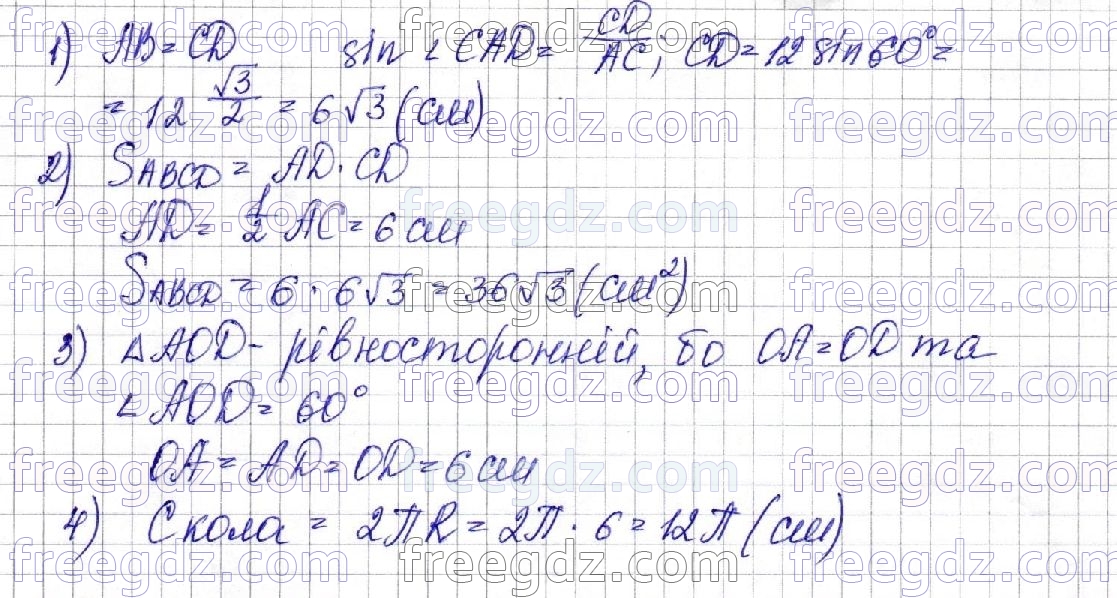 1) AB = CD   sin ∠CAD = CD/AC; CD = 12 sin 60° =
= 12 √3/2 = 6√3 (см)
2) SABCD = AD · CD
AD = 1/2 AC = 6 см
SABCD = 6 · 6√3 = 36√3 (см²)
3) △AOD - рівносторонній, бо OA = OD та
∠AOD = 60°
OA = AD = OD = 6 см
4) C кола = 2ΠR = 2Π · 6 = 12Π (см)
freegdz.com